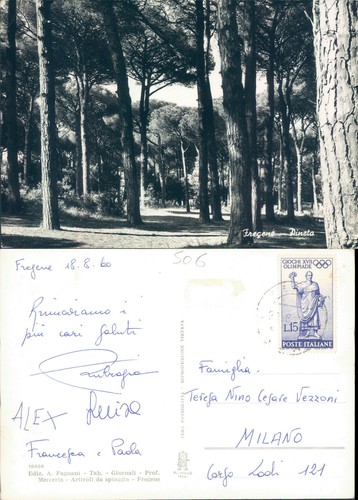 Fregene - Pineta
Fregene 18.8.60
506
i
più cari saluti
ALEX
Francesca e Paola
Ediz. A. Fagnani - Tab. - Giornali - Prof.
Merceria - Articoli da spiaggia - Fregene
GIOCHI XVII
OLIMPIADE
L.15
POSTE ITALIANE
Famiglia
Teresa Nino Cesare Vezzoni
MILANO
Corso Lodi 121